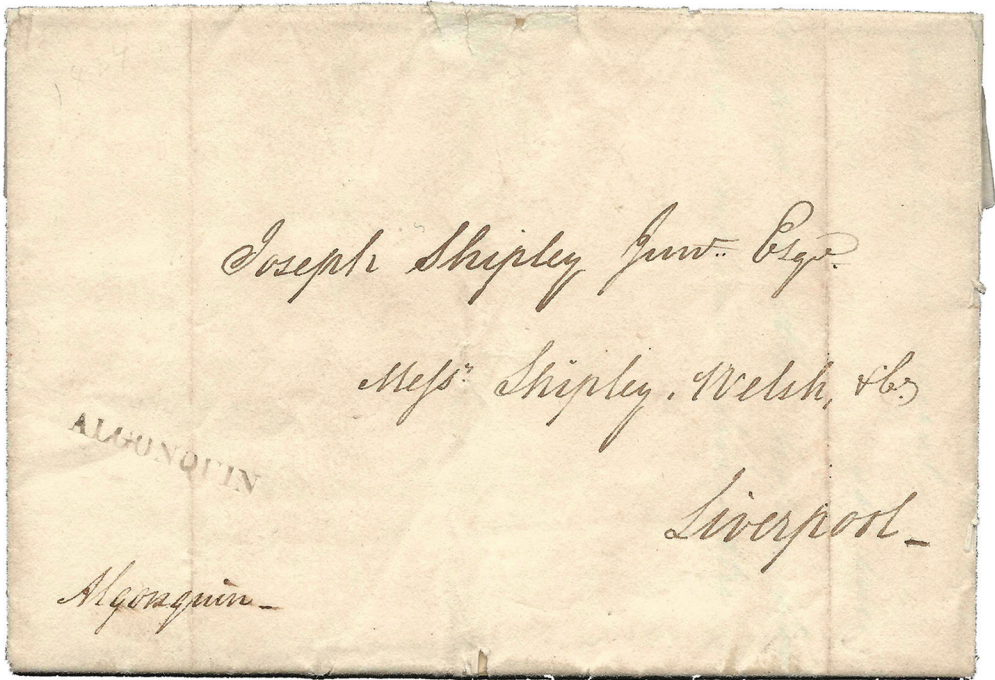 Joseph Shipley Junr. Esqr.
Messrs. Shipley, Welsh, & Co
Liverpool_
ALGONQUIN
Algonquin_